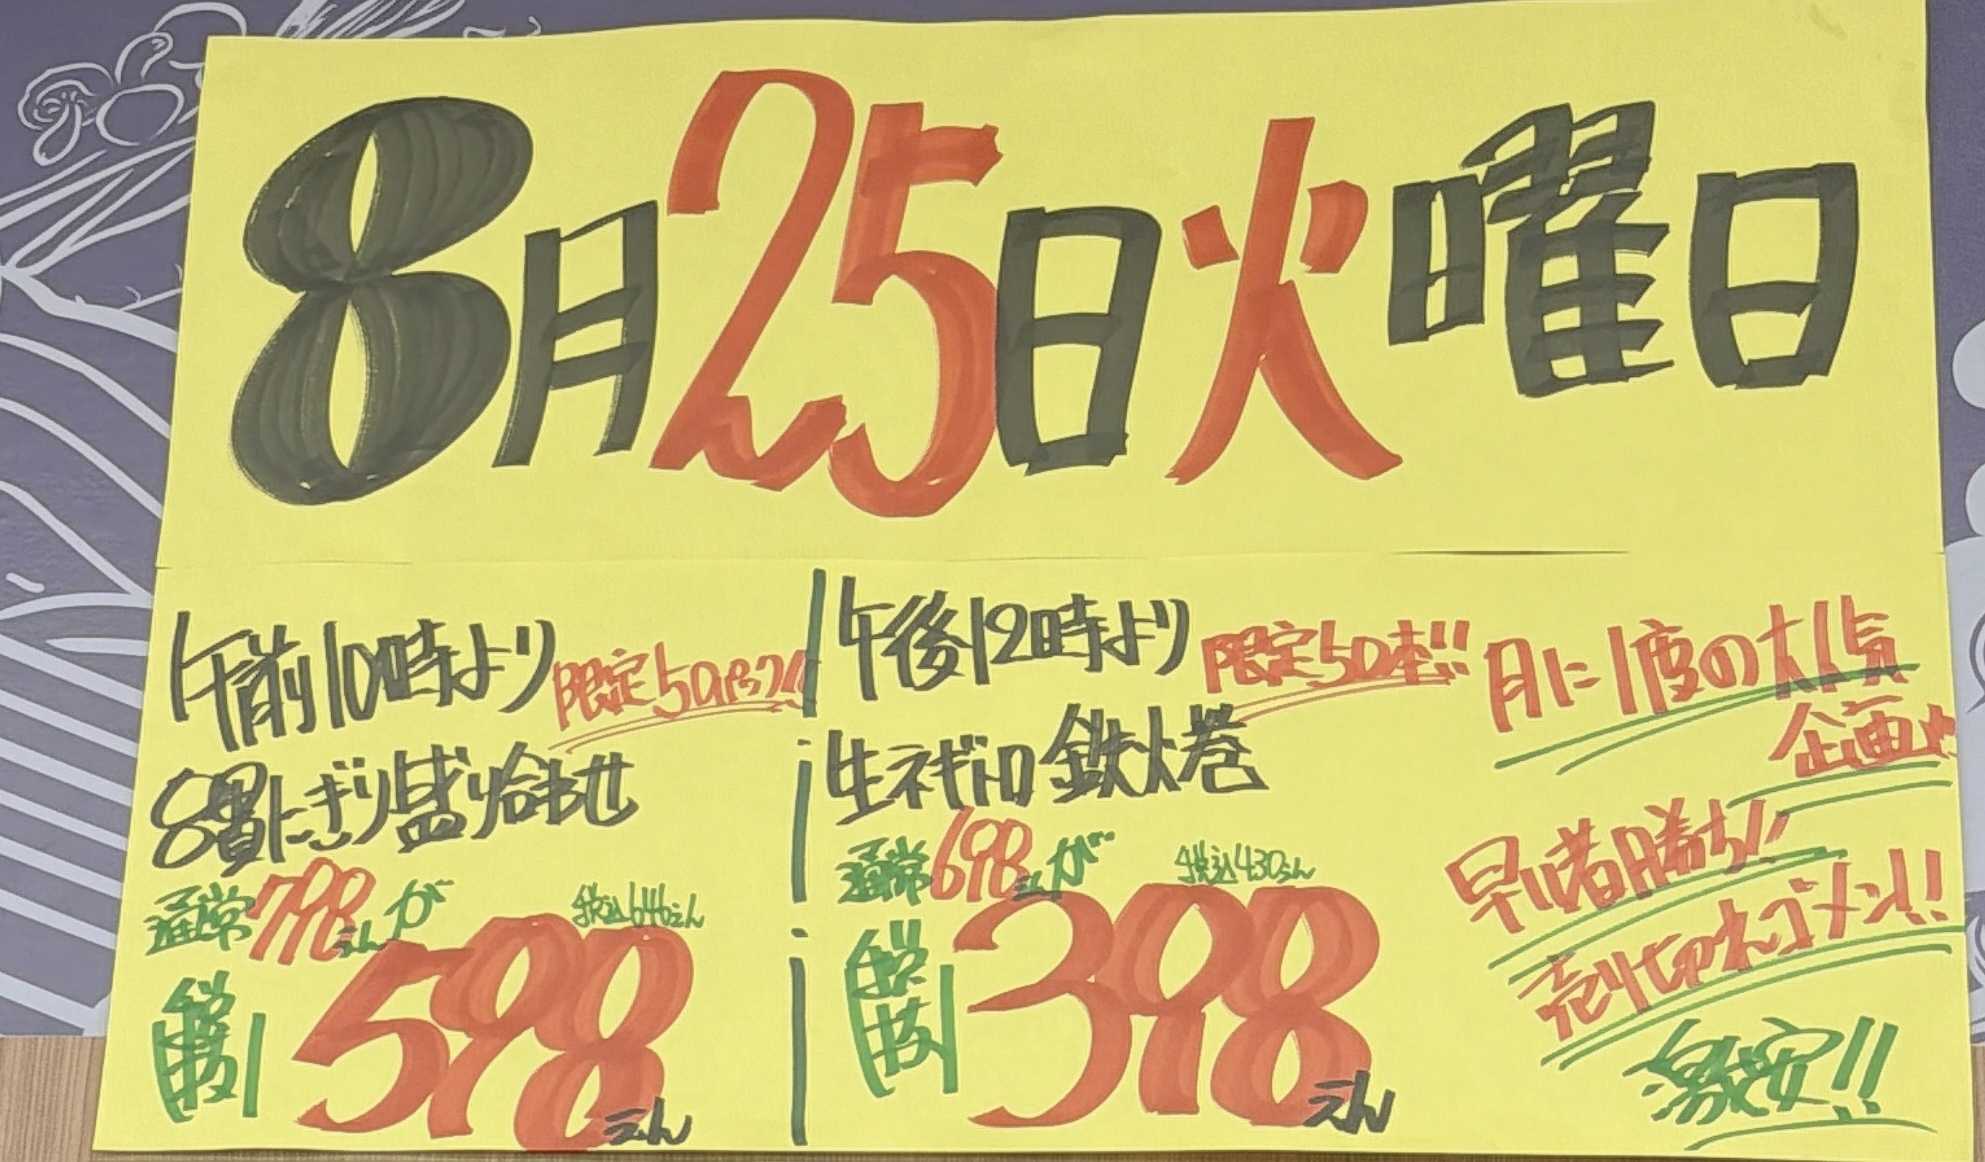 8月25日火曜日
午前10時より
限定50パック!!
8貫にぎり盛り合わせ
通常798えんが
税込646えん
598えん
午後12時より
限定50本!!
生ネギトロ鉄火巻
通常698えんが
税込430えん
税抜
398えん
月に1度の大人気
企画!!
早い者勝ち!!
売りきれゴメン!!
激安!!